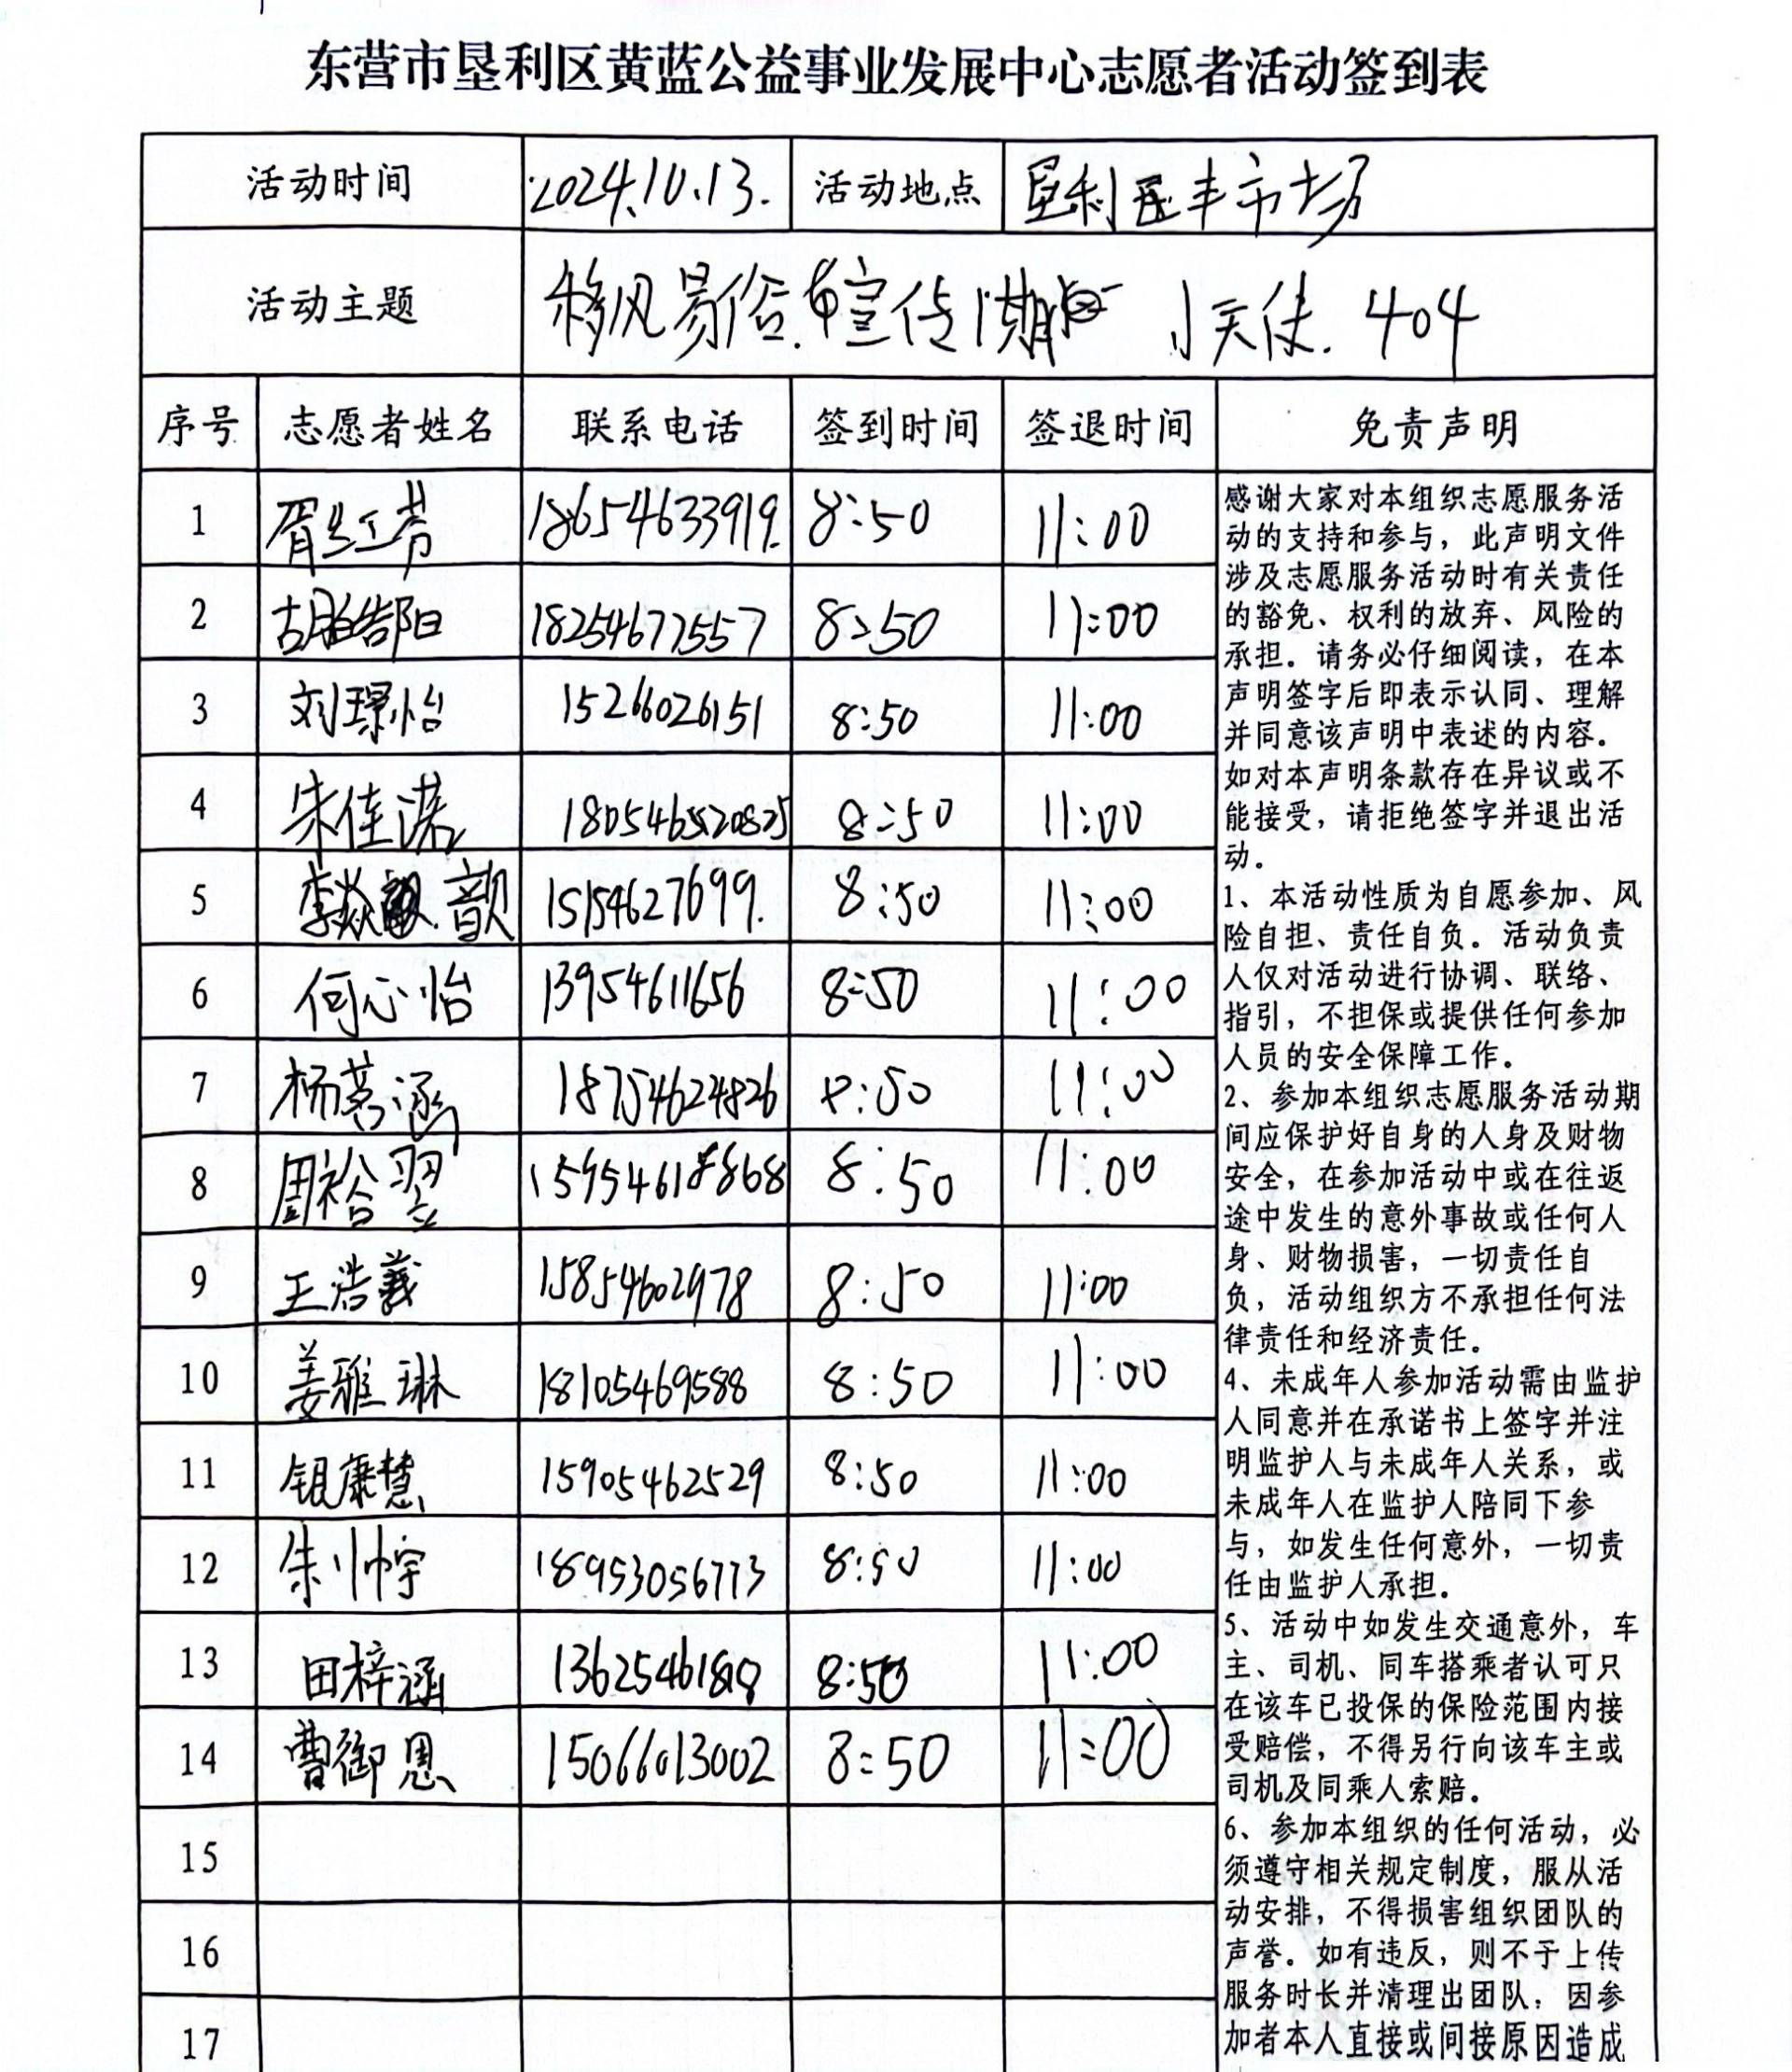 东营市垦利区黄蓝公益事业发展中心志愿者活动签到表
活动时间 2024.10.13. 活动地点 垦利区丰市场
活动主题 移风易俗 宣传 小天使. 404
序号 志愿者姓名 联系电话 签到时间 签退时间 免责声明
1 胥红芳 18654633919. 8:50 11:00
2 胡皓阳 18254677557 8:50 11:00
3 刘璟怡 15266026151 8:50 11:00
4 朱佳诺 8:50 11:00
5 李 歆 15154627699. 8:50 11:00
6 何心怡 13954611656 8:50 11:00
7 杨茗涵 18754624826 8:50 11:00
8 周裕翌 15954618868 8:50 11:00
9 王浩羲 15854602978 8:50 11:00
10 姜雅琳 18105469588 8:50 11:00
11 银康慧 15905462529 8:50 11:00
12 朱 宇 18953056773 8:50 11:00
13 田梓涵 8:50 11:00
14 曹御恩 15066013002 8:50 11:00
15
16
17
感谢大家对本组织志愿服务活
动的支持和参与，此声明文件
涉及志愿服务活动时有关责任
的豁免、权利的放弃、风险的
承担。请务必仔细阅读，在本
声明签字后即表示认同、理解
并同意该声明中表述的内容。
如对本声明条款存在异议或不
能接受，请拒绝签字并退出活
动。
1、本活动性质为自愿参加、风
险自担、责任自负。活动负责
人仅对活动进行协调、联络、
指引，不担保或提供任何参加
人员的安全保障工作。
2、参加本组织志愿服务活动期
间应保护好自身的人身及财物
安全，在参加活动中或在往返
途中发生的意外事故或任何人
身、财物损害，一切责任自
负，活动组织方不承担任何法
律责任和经济责任。
4、未成年人参加活动需由监护
人同意并在承诺书上签字并注
明监护人与未成年人关系，或
未成年人在监护人陪同下参
与，如发生任何意外，一切责
任由监护人承担。
5、活动中如发生交通意外，车
主、司机、同车搭乘者认可只
在该车已投保的保险范围内接
受赔偿，不得另行向该车主或
司机及同乘人索赔。
6、参加本组织的任何活动，必
须遵守相关规定制度，服从活
动安排，不得损害组织团队的
声誉。如有违反，则不于上传
服务时长并清理出团队，因参
加者本人直接或间接原因造成